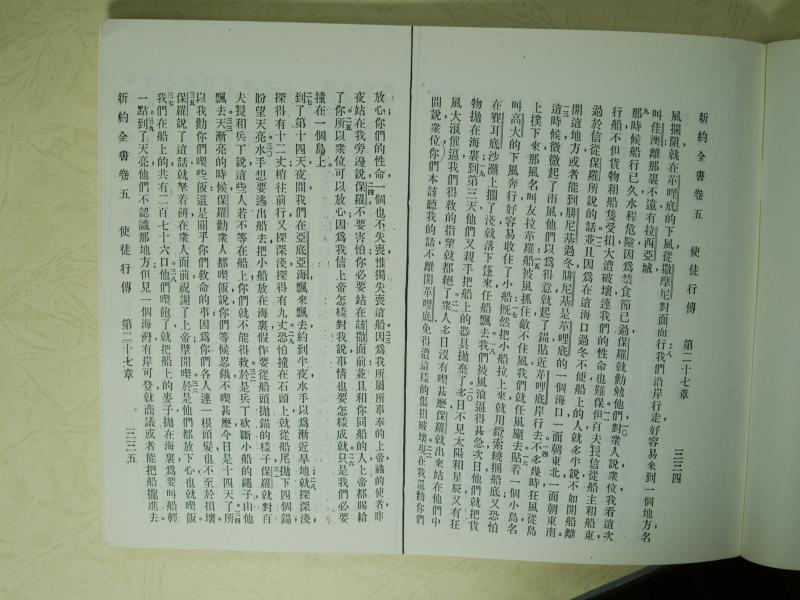 新約全書卷五　使徒行傳　第二十七章　三三四
風攔阻就在革哩底的下風從撒摩尼對面而行我們沿岸行走好容易來到一個地方名
叫佳澳離那裏不遠有拉西亞城
那時候船行已久水程危險因爲禁食節已過保羅就勸勉他們對衆人說衆位我看這次
行船不但貨物和船隻受損大遭破壞連我們的性命也難保但百夫長信從船主和船東
過於信從保羅所說的話並且因爲在這海口過冬不便船上的人就多半說不如開船離
開這地方或者能到腓尼基過冬腓尼基是革哩底的一個海口一面朝東北一面朝東南
這時候微微起了南風他們以爲得意就起了錨貼近革哩底岸行去不多幾時狂風從島
上撲下來那風名叫友拉革羅船被風抓住敵不住風我們就任風颳去貼着一個小島名
叫高大的下風奔行好容易收住了小船旣然把小船拉上來就用纜索繞捆船底又恐怕
在賽耳底沙灘上擱了淺就落下篷來任船飄去我們被風浪逼得甚急次日他們就把貨
物拋在海裏到第三天他們又親手把船上的器具拋棄了多日不見太陽和星辰又有狂
風大浪催逼我們得救的指望就都絕了衆人多日沒有喫甚麽保羅就出來站在他們中
間說衆位你們本該聽我的話不離開革哩底免得遭這樣的傷損破壞現在我還勸你們
放心你們的性命一個也不失喪惟獨失喪這船因爲我所屬所事奉的上帝他的使者昨
夜站在我旁邊說保羅不要害怕你必要站在該撒面前並且和你同船的人上帝都賜給
了你所以衆位可以放心因爲我信上帝怎樣對我說事情也要怎樣成就只是我們必要
撞在一個島上
到了第十四天夜間我們在亞底亞海飄來飄去約到半夜水手以爲漸近旱地就探深淺
探得有十二丈稍往前行又探深淺探得有九丈恐怕撞在石頭上就從船尾拋下四個錨
盼望天亮水手想要逃出船去把小船放在海裏假作要從船頭拋錨的樣子保羅就對百
夫長和兵丁說這些人若不等在船上你們就不能得救於是兵丁砍斷小船的繩子由他
飄去天漸亮的時候保羅勸衆人都喫飯說你們等候忍餓不喫甚麽今日是十四天了所
以我勸你們喫些飯這是關乎你們救命的事因爲你們各人連一根頭髮也不至於損壞
保羅說了這話就拏着餅在衆人面前祝謝了上帝擘開喫於是他們都放下心也就喫飯
我們在船上的共有二百七十六口他們喫飽了就把船上的麥子拋在海裏爲要叫船輕
一點到了天亮他們不認識那地方但見一個海灣有岸可登就商議或者能把船攏進去
新約全書卷五　使徒行傳　第二十七章　三三五